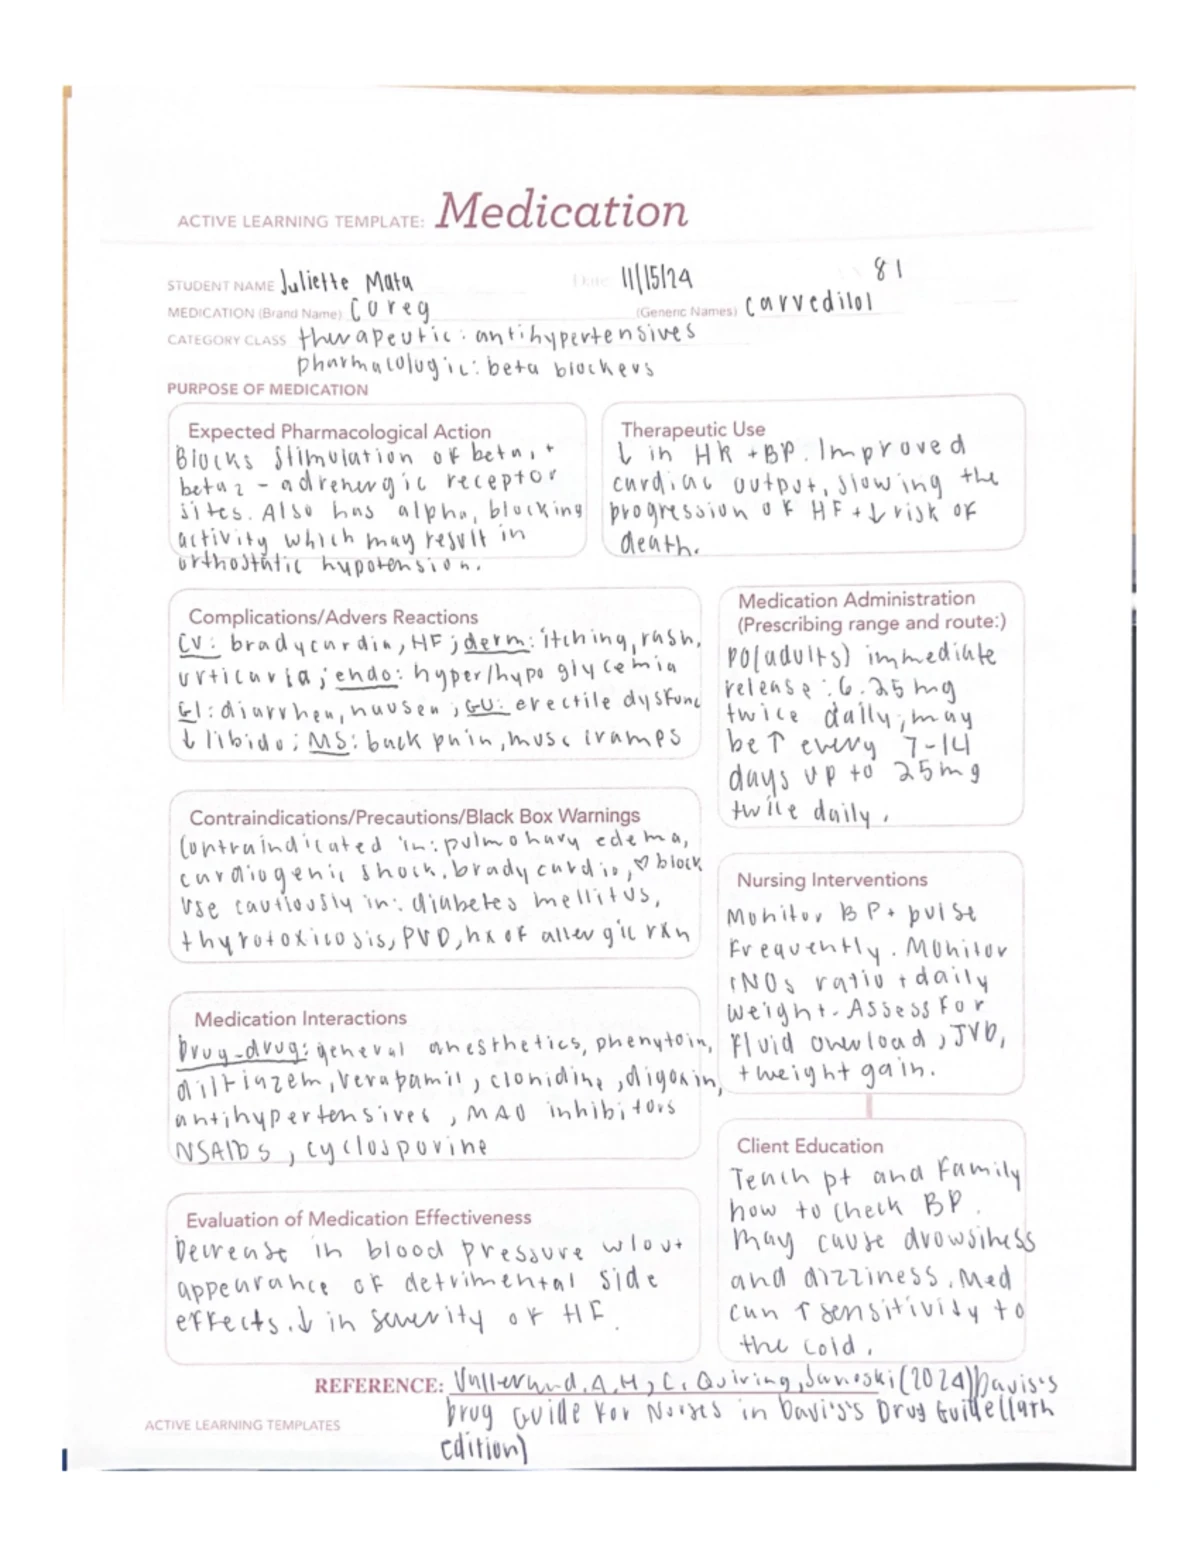 ACTIVE LEARNING TEMPLATE: Medication
STUDENT NAME Juliette Mata Date 11/15/24 81
MEDICATION (Brand Name) Coreg (Generic Names) carvedilol
CATEGORY CLASS therapeutic: antihypertensives
pharmacologic: beta blockers
PURPOSE OF MEDICATION
Expected Pharmacological Action
Blocks stimulation of beta, +
beta2 - adrenergic receptor
sites. Also has alpha, blocking
activity which may result in
orthostatic hypotension.
Therapeutic Use
↓ in HR + BP. Improved
cardiac output, slowing the
progression of HF + ↓ risk of
death.
Complications/Advers Reactions
CV: bradycardia, HF; derm: itching, rash,
urticaria; endo: hyper/hypo glycemia
GI: diarrhea, nausea; GU: erectile dysfunc
↓ libido; MS: back pain, musc cramps
Medication Administration
(Prescribing range and route:)
PO(adults) immediate
release: 6.25mg
twice daily, may
be ↑ every 7-14
days up to 25mg
twice daily.
Contraindications/Precautions/Black Box Warnings
Contraindicated in: pulmonary edema,
cardiogenic shock, bradycardia, ♡ block
Use cautiously in: diabetes mellitus,
thyrotoxicosis, PVD, hx of allergic rxn
Nursing Interventions
Monitor BP + pulse
frequently. Monitor
INOs ratio + daily
weight. Assess for
fluid overload, JVD,
+ weight gain.
Medication Interactions
Drug-drug: general anesthetics, phenytoin,
diltiazem, verapamil, clonidine, digoxin,
antihypertensives, MAO inhibitors
NSAIDs, cyclosporine
Client Education
Teach pt and family
how to check BP.
May cause drowsiness
and dizziness. Med
can ↑ sensitivity to
the cold.
Evaluation of Medication Effectiveness
Decrease in blood pressure w/out
appearance of detrimental side
effects. ↓ in severity of HF.
REFERENCE: Vallerand, A, H, C. Quiring, Sanoski (2024) Davis's
Drug Guide for Nurses in Davis's Drug Guide
edition)
ACTIVE LEARNING TEMPLATES